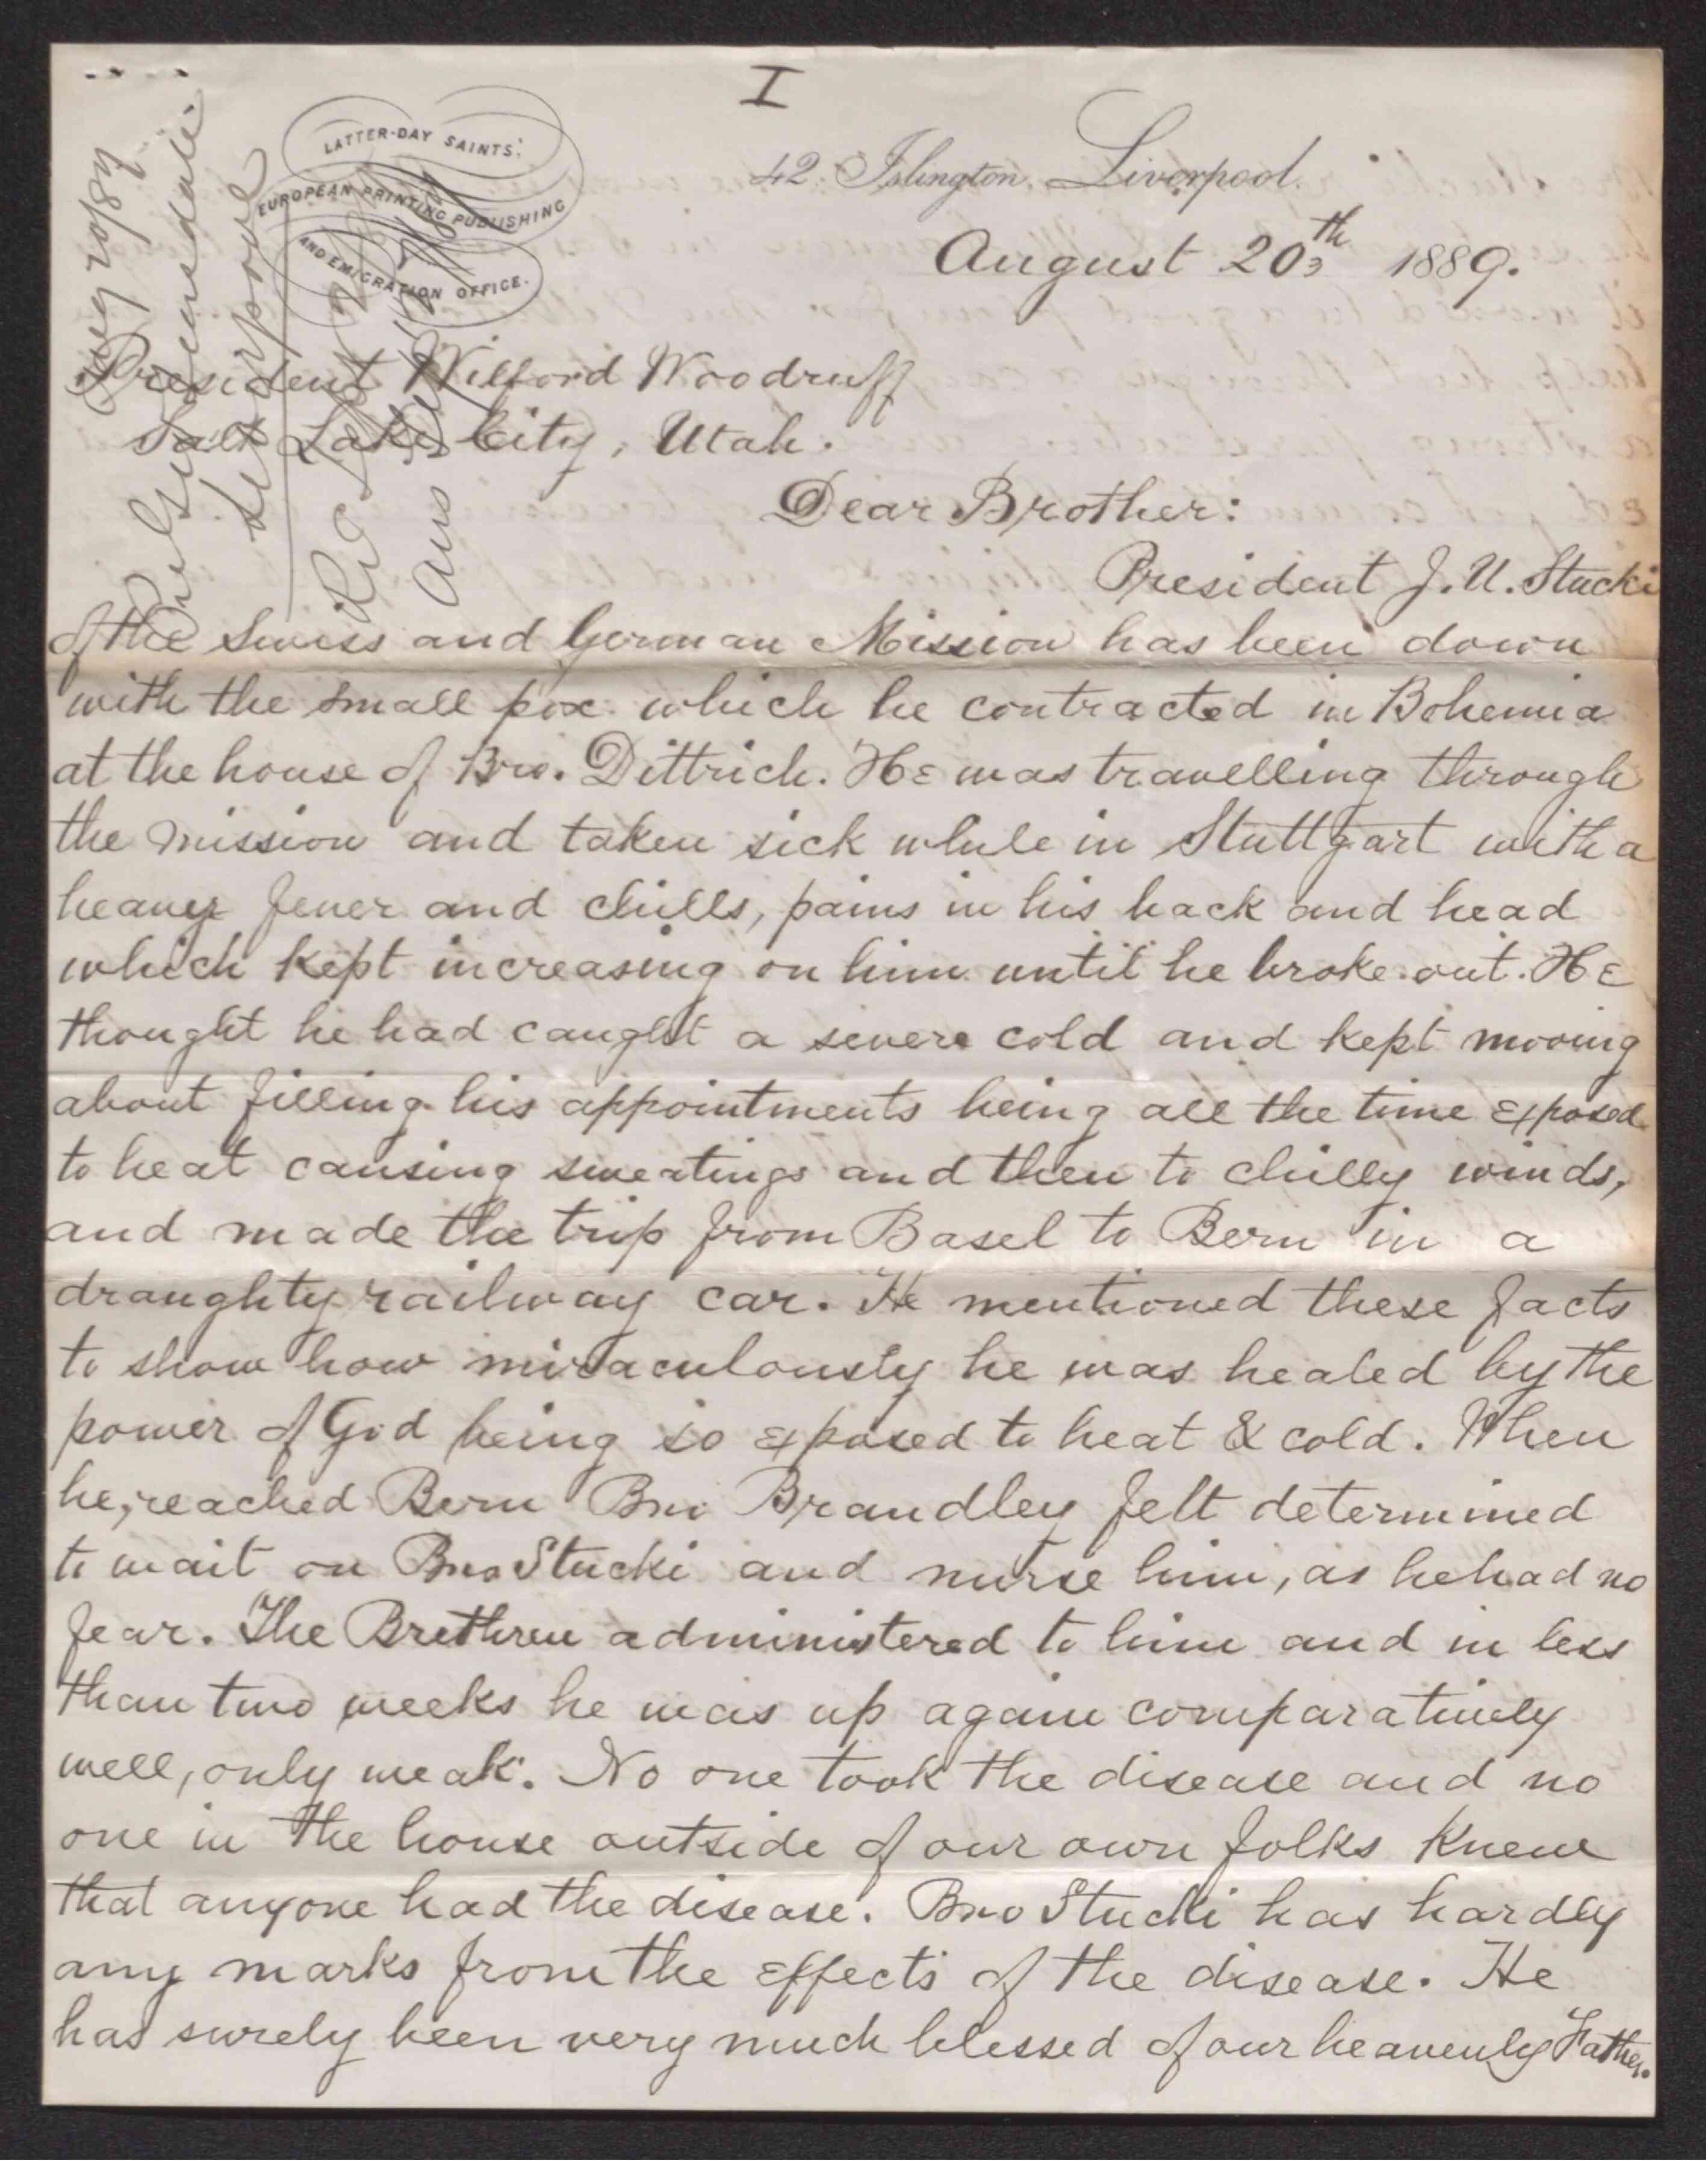 I
LATTER-DAY SAINTS'
EUROPEAN PRINTING PUBLISHING
AND EMIGRATION OFFICE.
42, Islington, Liverpool.
August 20th 1889.
Aug 20/89
Liverpool
Rec
Ans
President Wilford Woodruff
Salt Lake City, Utah.
Dear Brother:
President J. U. Stucki
of the Swiss and German Mission has been down
with the small pox which he contracted in Bohemia
at the house of Bro. Dittrich. He was travelling through
the mission and taken sick while in Stuttgart with a
heavey fever and chills, pains in his back and head
which kept increasing on him until he broke out. He
thought he had caught a severe cold and kept moving
about filling his appointments being all the time exposed
to heat causing sweatings and then to chilly winds,
and made the trip from Basel to Bern in a
draughty railway car. He mentioned these facts
to show how miraculously he was healed by the
power of God being so exposed to heat & cold. When
he, reached Bern Bro Brandley felt determined
to wait on Bro Stucki and nurse him, as he had no
fear. The Brethren administered to him and in less
than two weeks he was up again comparatively
well, only weak. No one took the disease and no
one in the house outside of our own folks knew
that anyone had the disease. Bro Stucki has hardly
any marks from the effects of the disease. He
has surely been very much blessed of our heavenly Father.